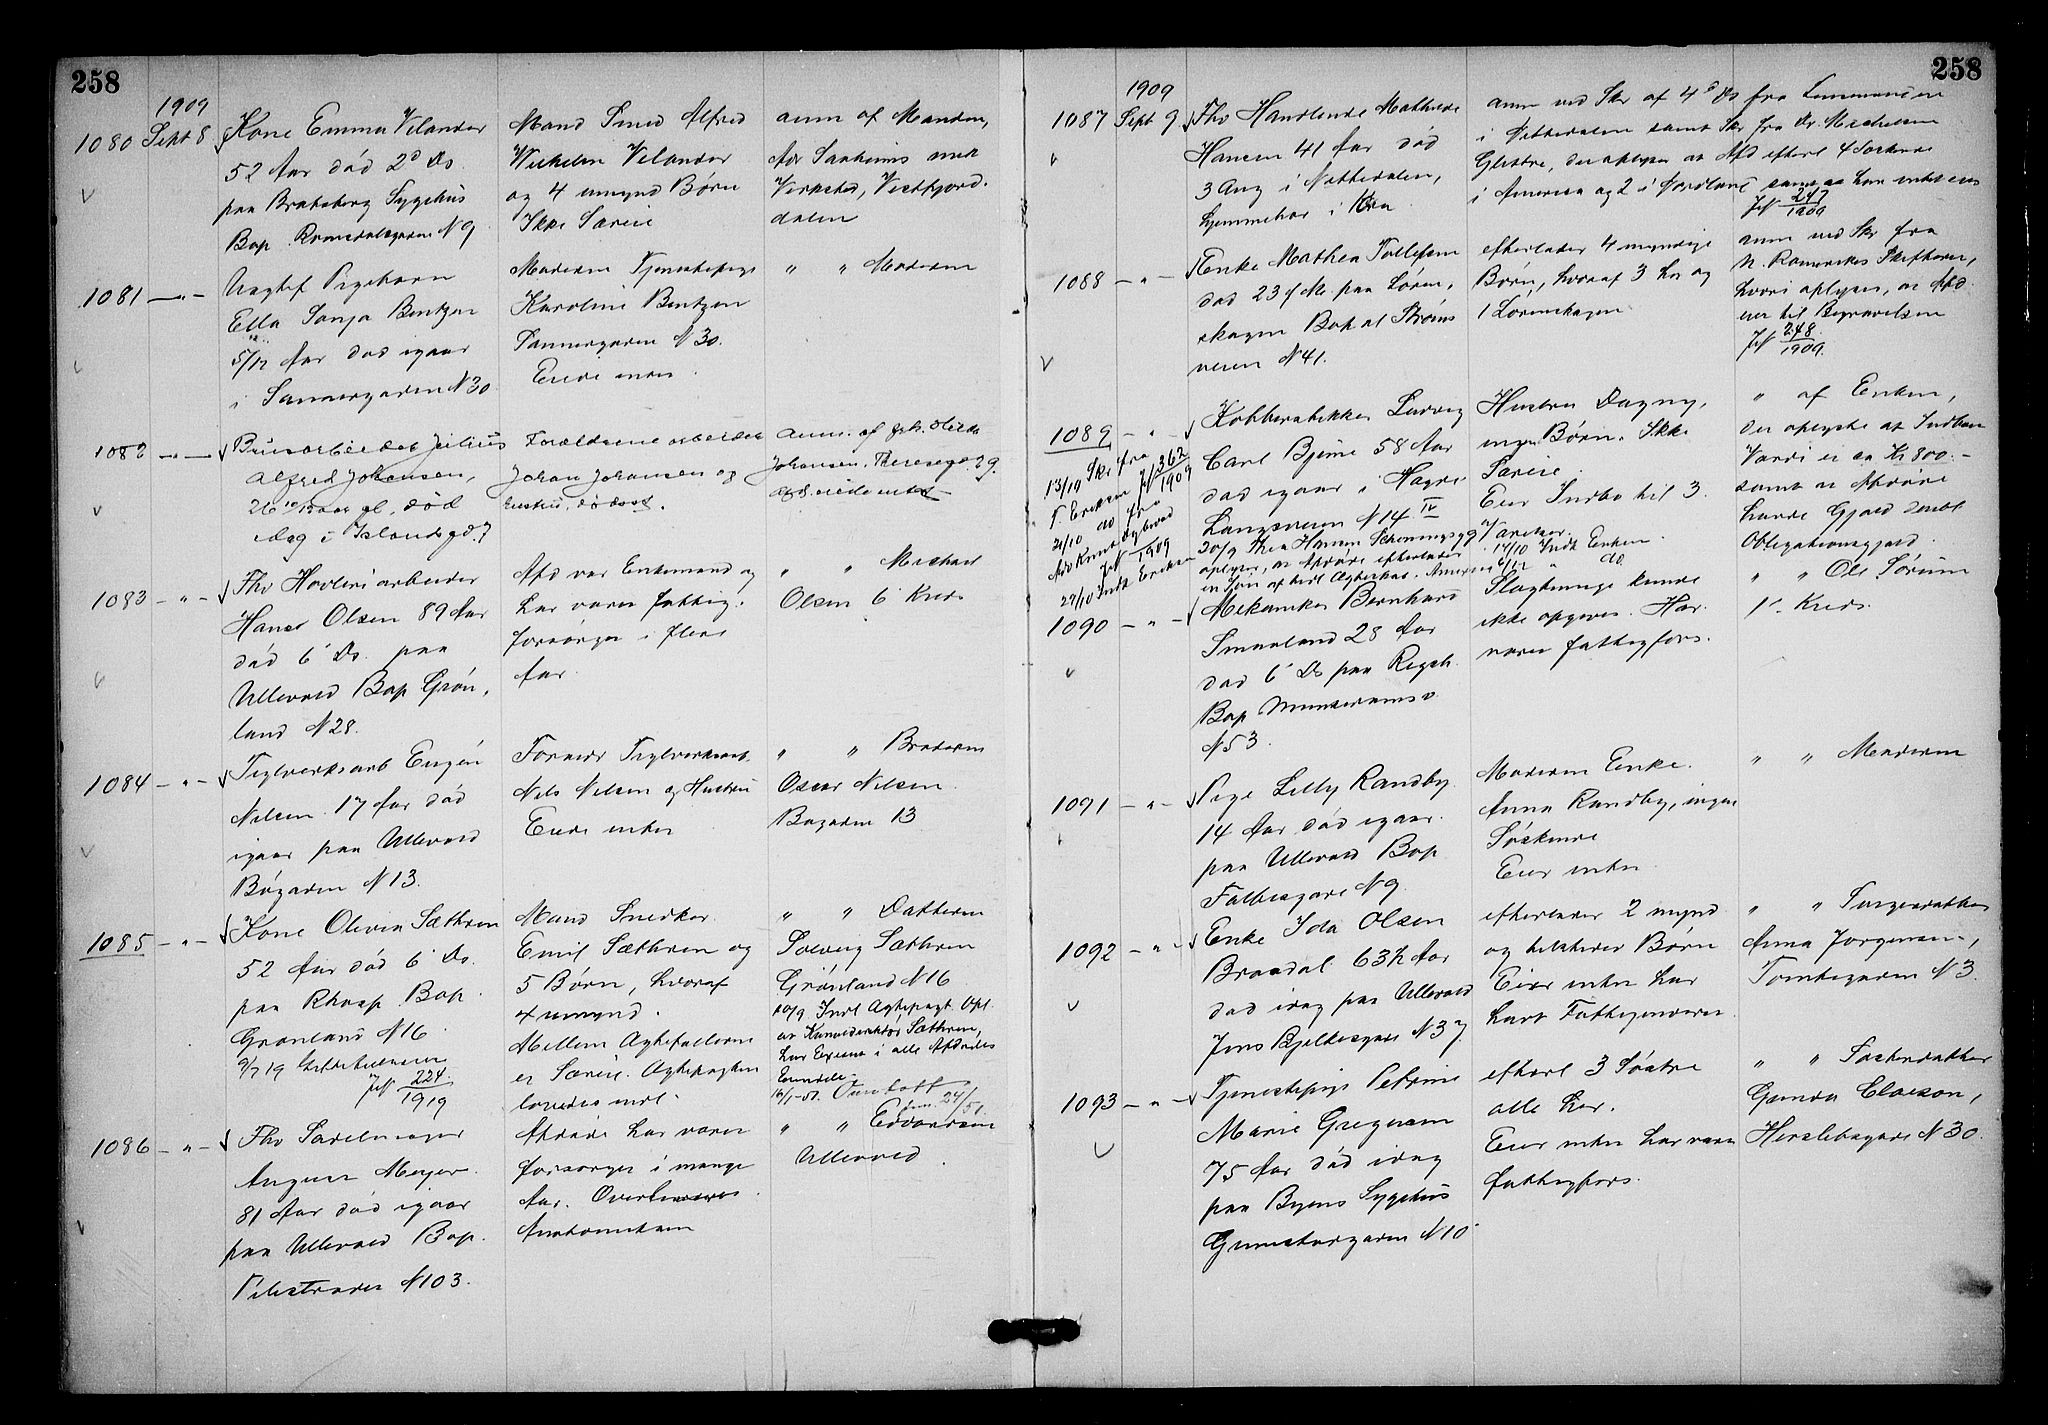 258
1909
1080 Sept 8
Kone Emma Velander
52 Aar død 2d Ds.
paa Bratsberg Sygehus
Bop. Romsdalsgaden N 9
Mand Smed Alfred
Wilhelm Velander
og 4 umynd Børn
Ikke Særeie
anm af Manden,
Adr Saaheims mek
Verksted, Vestfjord-
dalen
1081 — " —
Uægtef Pigebarn
Ella Sonja Bentzen
5/12 Aar død igaar
i Sannergaden N 30
Moderen Tjenestepige
Karoline Bentzen
Sannergaden N 30.
Eiede intet.
" " Moderen
1082 — " —
Julius
Alfred Johansen,
død
idag i Islandsgd. 7
Forældrene arbeider
Johan Johansen og
Hustru, død
anm. af frk. Hilda
Johansen, Theresegd. 29.
Afd. eiede intet
1083 — " —
Fhv Høvleriarbeider
Hans Olsen 89 Aar
død 6' Ds. paa
Ullevold Bop Grøn-
land N 28.
Afd var Enkemand og
har været fattig-
forsørget i flere
Aar.
" " Michael
Olsen 6' Kreds
1084 — " —
Teglverksarb Eugén
Nilsen 17 Aar død
igaar paa Ullevold
Bøgaden N 13.
Forældr Teglverksarb.
Nils Nilsen og Hustru
Eiede intet
" " Broderen
Oscar Nilsen
Bøgaden 13
1085 — " —
Kone Olivia Sæthren
52 Aar død 6' Ds.
paa Rhosp. Bop.
Grønland N 16
JN 224/1919
Mand Snedker
Emil Sæthren og
5 Børn, hvoraf
4 umynd.
Mellem Ægtefællerne
er Særeie. Ægtepagten
lovedes indl.
" " Datteren
Solveig Sæthren
Grønland N 16
10/9 Indl Ægtepagt. Opl.
Sæthren,
har i alle Afdødes
16/1-51.
24/51.
1086 — " —
Fhv Sadelmager
August Meyer
81 Aar død igaar
paa Ullevold Bop.
Pilestrædet N 103.
Afdøde har været
forsørget i mange
Aar. Overleveres
Anatomikam
" " Edvardsen
Ullevold
258
1909
1087 Sept 9
Fhv Handlende Mathilde
Hansen 41 Aar død
3 Aug i Nittedalen,
hjemmehør i Kra
anm ved Skr af 4d Ds fra Lensmanden
i Nittedalen samt Skr fra Dr. Michelsen
Glittre, der oplyser at Afd efterl 4 Søskende
i Amerika og 2 i Nordland samt at hun intet eier
JN 247/1909
1088 — " —
Enke Mathea Tollefsen
død 23 f M. paa Løren-
skogen Bop at Strøms
veien N 41.
efterlader 4 myndige
Børn, hvoraf 3 her og
1 Lørenskogen
anm ved Skr fra
N. Romerikes Skifteret,
hvori oplyses, at Afd
eier til Begravelsen
JN 248/1909.
1089 — " —
13/10 Skr fra
JN 362/1909
JN 1909
27/10 Indk Eriksen
Kobberstikker Ludvig
Carl Bjerne 58 Aar
død igaar i Hagre
Langesveien N 14 IV
30/9 Thea Hansen Schøningsg 9
oplyser, at Afdøde efterlader
Hustru Dagny,
ingen Børn. Ikke
Særeie.
Eier Indbo til 3
Værelser.
17/10 Indk Enken
" af Enken,
der oplyste at Indboets
Værdi er ca Kr 800.-
samt at Afdøde
havde Gjæld imod
Obligationsgjæld.
1090 — " —
Mekaniker Bernhard
Smaaland 28 Aar
død 6' Ds paa Rigsh.
Bop Munkedamsv
N 53.
Slægtninge kunde
ikke opgives. Har
været fattigfors.
" " Ole Sørum
1' Kreds.
1091 — " —
Pige Lilly Randby
14 Aar død igaar
paa Ullevold Bop
Falbesgade N 9.
Moderen Enke
Anna Randby, ingen
Søskende
Eier intet
" " Moderen
1092 — " —
Enke Ida Olsen
Braadal 63½ Aar
død idag paa Ullevold
Jens Bjelkesgade N 37
efterlader 2 mynd
og tilstedev Børn
Eier intet har
havt Fattigunderst.
" " Svigerdatter
Anna Jørgensen,
Tomtegaden N 3.
1093 — " —
Tjenestepige Petrine
Marie Gregersen
75 Aar død idag
paa Byens Sygehus
Grünersgaden N 10
efterl 3 Søstre
alle her.
Eier intet har været
fattigfors.
" " Søsterdatter
Gunda Claeson,
Herslebsgade N 30.